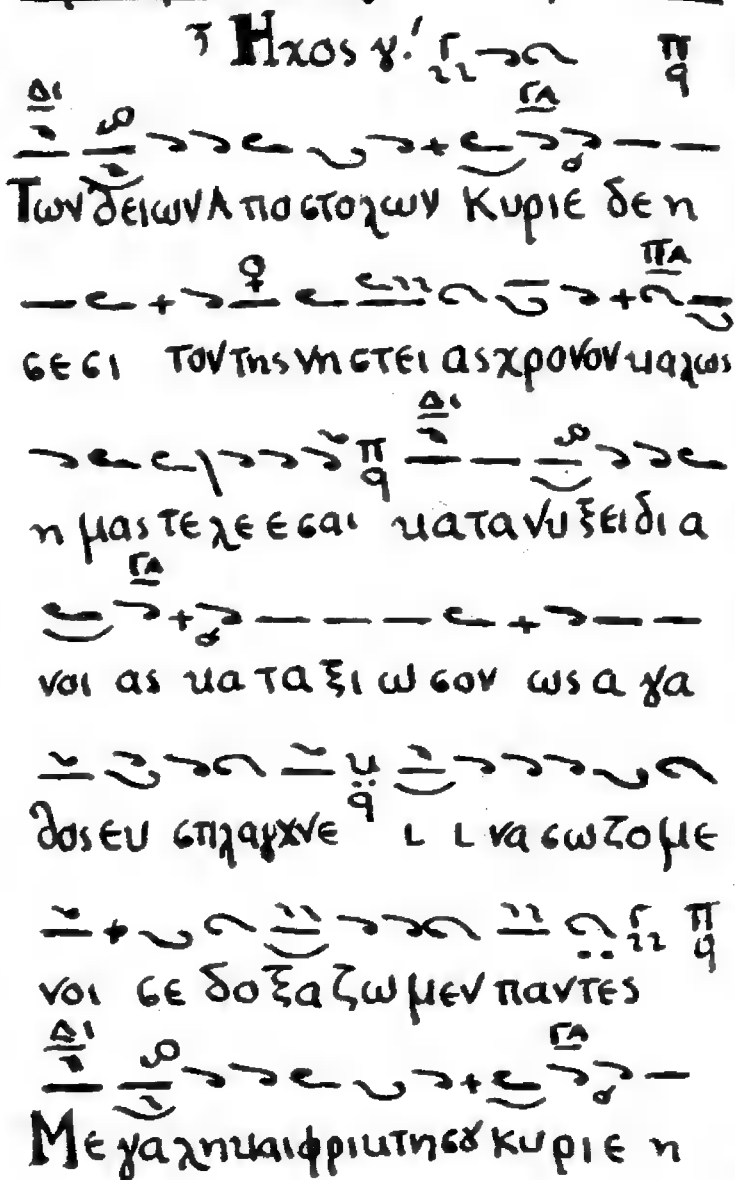 Ηχος γ!
Των θειων Αποστολων Κυριε δεη
σεσι τον της νηστειας χρονον καλως
ημας τελεεσαι κατανυξει δια
νοιας καταξιωσον ως αγα
θος ευσπλαγχνε ι ινα σωζομε
νοι σε δοξαζωμεν παντες
Μεγαλη και φρικτη σȣ κυριε η